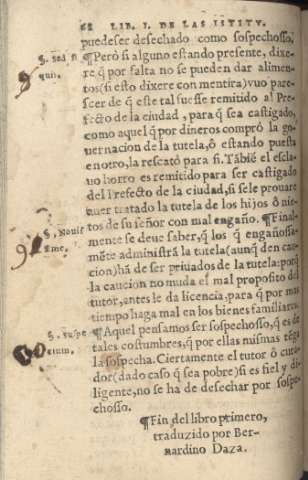 68 LIB. I. DE LAS ISTITV.
puedeser desechado como sospechosso.
§. sed si
¶Però si alguno estando presente, dixe-
qui.
re q̃ por falta no se pueden dar alimen-
tos (si esto dixere con mentira) vuo pare-
scer de q̃ este tal fuesse remitido al Pre-
fecto de la ciudad, para q̃ sea castigado,
como aquel q̃ por dineros comprò la go-
uernacion de la tutela, ô estando puesta
en otro, la rescatò para si. Tãbiẽ el escla-
uo horro es remitido para ser castigado
del Prefecto de la ciudad, si se le prouare
auer tratado la tutela de los hijos ô nie-
tos de su señor con mal engaño. ¶Final-
§. Nouis
mente se deue saber, q̃ los q̃ engañosa-
sime.
mẽte administrã la tutela (aunq̃ den cau-
cion) hã de ser priuados de la tutela: porq̃
la caucion no muda el mal proposito del
tutor, antes le da licencia, para q̃ por mas
tiempo haga mal en los bienes familiares.
§. suspe
¶Aquel pensamos ser sospechosso, q̃ es de
ctum.
tales costumbres, q̃ por ellas mismas tẽga
la sospecha. Ciertamente el tutor ô cura-
dor (dado caso q̃ sea pobre) si es fiel y di-
ligente, no se ha de desechar por sospe-
chosso.
¶Fin del libro primero,
traduzido por Ber-
nardino Daza.